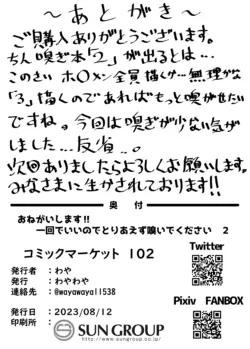 ～あとがき～
ご購入ありがとうございます。
ちん嗅ぎ本「2」が出るとは…
このさい ホ〇メン全員描くか…無理かな
「3」描くのであればもっと嗅がせたい
ですね。今回は嗅ぎが少ない気が
しました…反省。。
次回ありましたらよろしくお願いします。
みなさまに生かされております!!
奥 付
おねがいします!!
一回でいいのでとりあえず嗅いでください 2
コミックマーケット 102
発行者：わや
発行 ：わやわや
連絡先：@wayawaya11538
発行日：2023/08/12
印刷所：SUN GROUP
http://www.sungroup.co.jp/
Twitter
Pixiv FANBOX